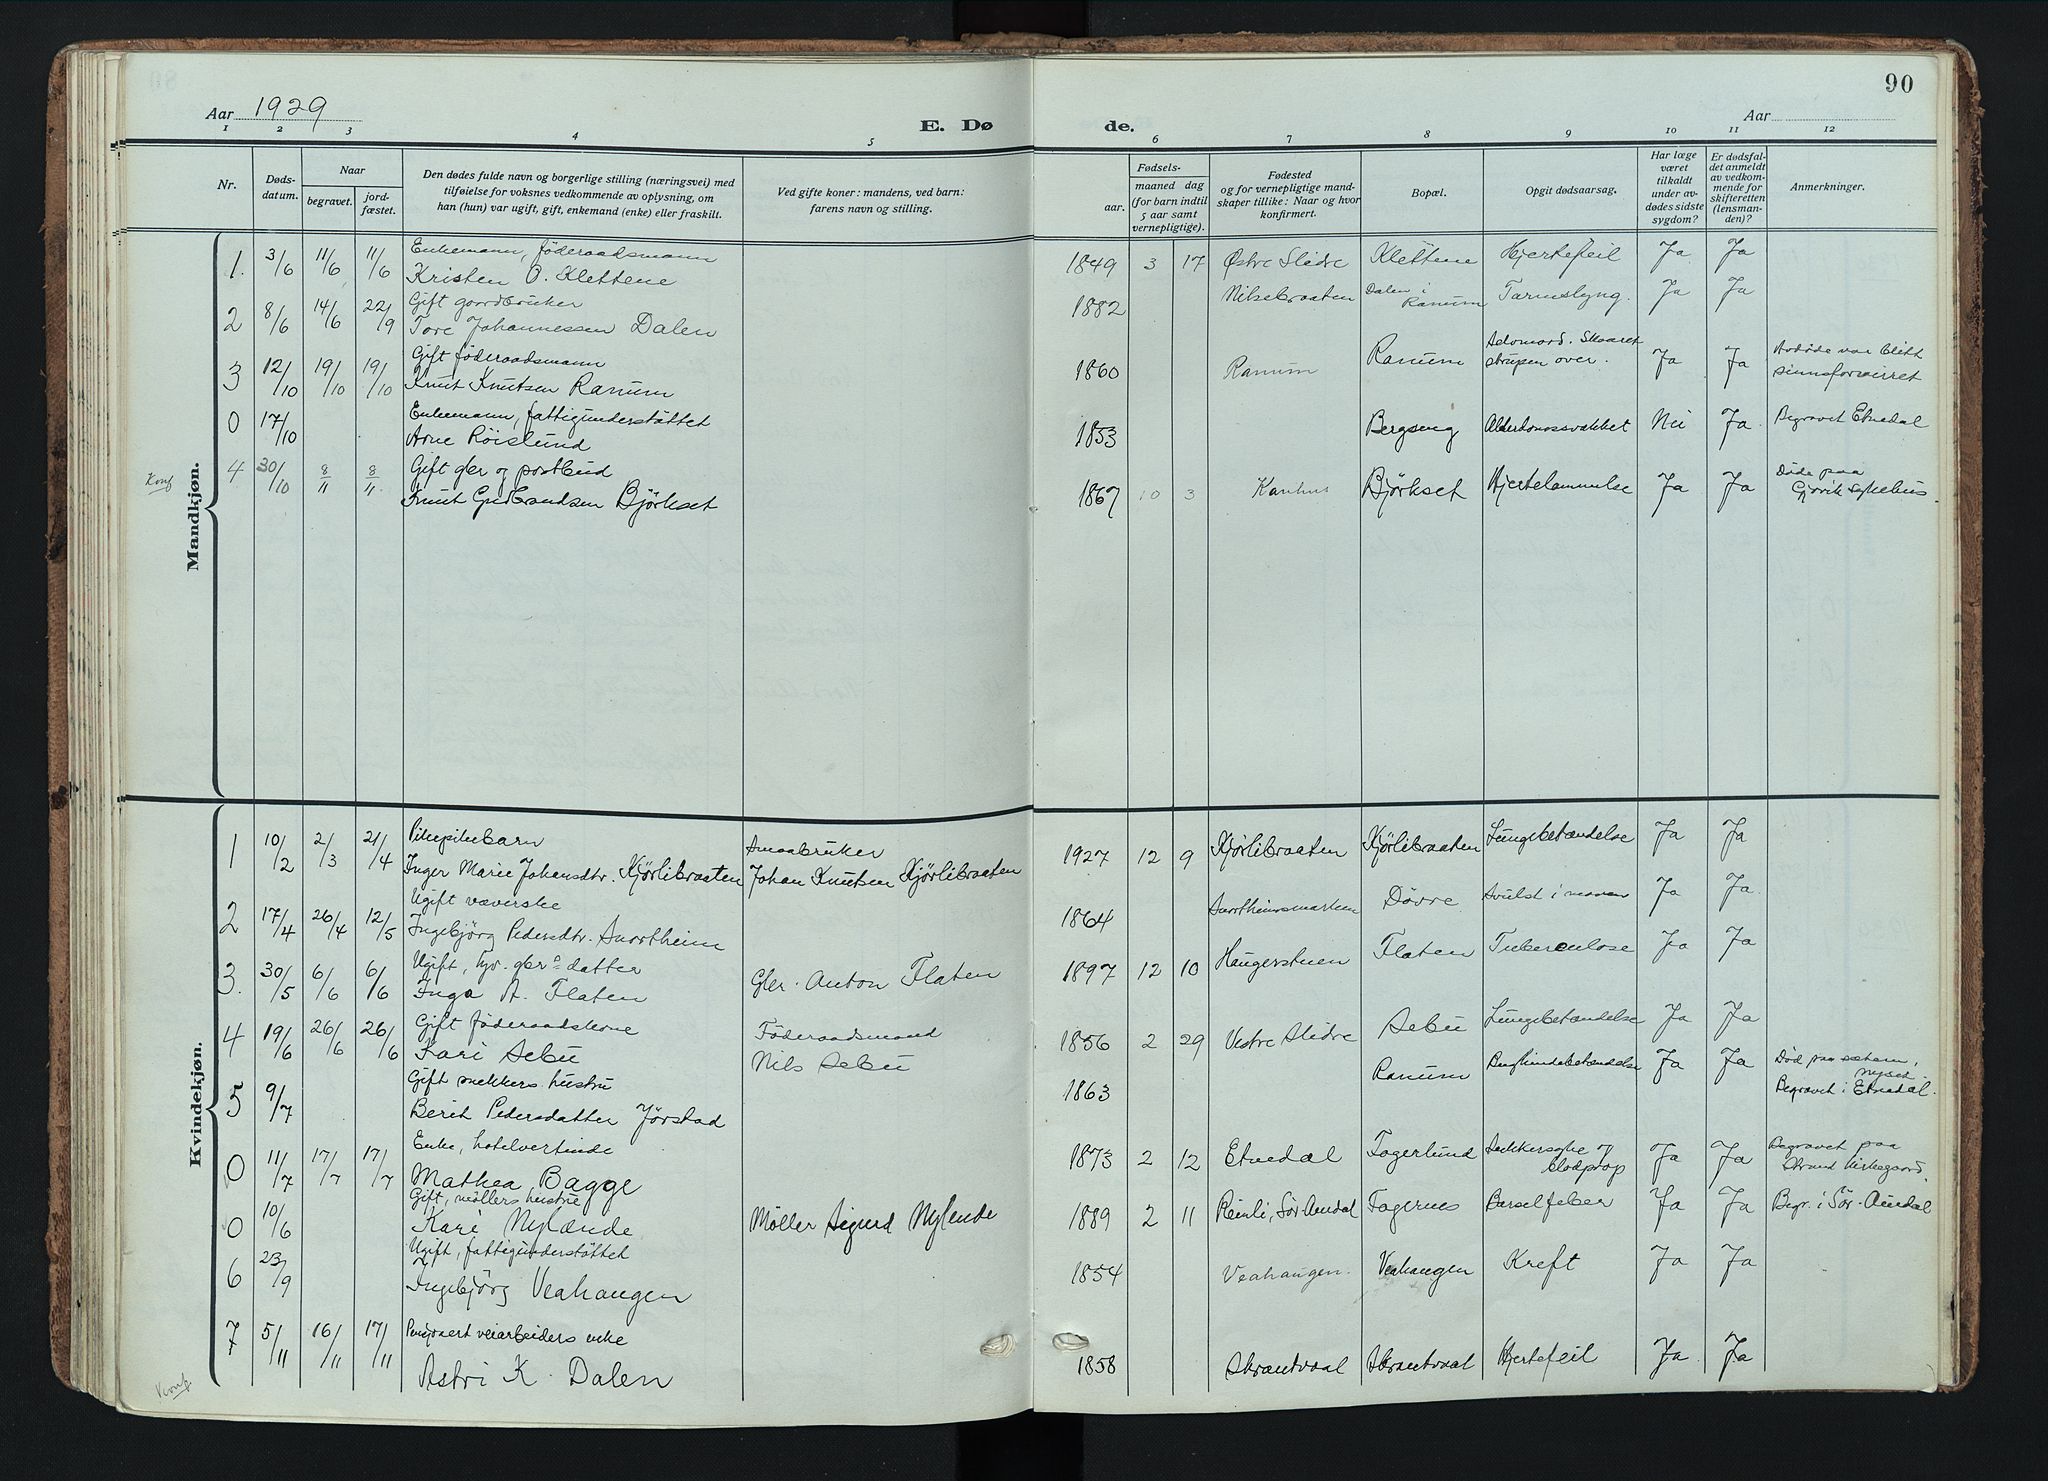 90
Aar 1929
E. Døde.
Aar
1 2 3 4 5 6 7 8 9 10 11 12
Nr.
Dødsdatum.
Naar
begravet.
jordfæstet.
Den dødes fulde navn og borgerlige stilling (næringsvei) med
tilføielse for voksnes vedkommende av oplysning, om
han (hun) var ugift, gift, enkemand (enke) eller fraskilt.
Ved gifte koner: mandens, ved barn:
farens navn og stilling.
Fødsels-
aar.
maaned dag
(for barn indtil
5 aar samt
vernepligtige).
Fødested
og for vernepligtige mand-
skaper tillike: Naar og hvor
konfirmert.
Bopæl.
Opgit dødsaarsag.
Har læge
været
tilkaldt
under av-
dødes sidste
sygdom?
Er dødsfal-
det anmeldt
av vedkom-
mende for
skifteretten
(lensman-
den)?
Anmerkninger.
Mandkjøn.
Enkemann, föderaadsmann
1. 3/6 11/6 11/6 Kristen O. Klettene 1849 3 17 Østre Slidre Klettene Hjertefeil Ja Ja
Gift gaardbruker
2 8/6 14/6 22/9 Tore Johannessen Dalen 1882 Nilsebraaten Dalen i Ranum Tarmslyng. Ja Ja
Gift föderaadsmann
3 12/10 19/10 19/10 Knut Knutsen Ranum 1860 Ranum Ranum Selvmord. Skaaret strupen over. Ja Ja Avdøde var blitt sinnsforvirret
Enkemann, fattigunderstöttet
0 17/10 Arne Röislund 1853 Bergseng Alderdomssvakket Nei Ja Begravet Etnedal
Gift gbr og postbud
Konf 4 30/10 8/11 8/11 Knut Gudbrandsen Björkset 1867 10 3 Björkset Hjertelammelse Ja Ja Döde paa Gjøvik Sykehus
Kvindekjøn.
Pikebarn Smaabruker
1 10/2 2/3 21/4 Inger Marie Johansdtr. Kjörlibraaten Johan Knutsen Kjörlibraaten 1927 12 9 Kjörlibraaten Kjörlibraaten Lungebetændelse Ja Ja
Ugift væverske
2 17/4 26/4 12/5 Ingebjörg Pedersdtr. Snortheim 1864 Snortheimsmarken Dövre Svulst i maven Ja Ja
Ugift, fhv. gbr.s datter
3. 30/5 6/6 6/6 Inga A. Flaten Gbr. Anton Flaten 1897 12 10 Haugerstuen Flaten Tuberculose Ja Ja
Gift föderaadskone Föderaadsmand
4 19/6 26/6 26/6 Kari Sebu Nils Sebu 1856 2 29 Vestre Slidre Sebu Lungebetændelse Ja Ja
Gift snekkers hustru
5 9/7 Berit Pedersdatter Jörstad 1863 Ranum Brysthindebetændelse Ja Ja Död paa sætern, Nyset. Begravet i Etnedal.
Enke, hotelvertinde
0 11/7 17/7 17/7 Mathea Bagge 1873 2 12 Etnedal Fagerlund Sukkersyke og blodprop Ja Ja Begravet paa Strand Kirkegaard.
Gift, möllers hustru
0 10/6 Kari Nylænde Møller Sigurd Nylende 1889 2 11 Reinli, Sör Aurdal Fagernes Barselfeber Ja Ja Begr. i Sör-Aurdal
Ugift, fattigunderstöttet
6 23/9 Ingebjörg Veahaugen 1854 Veahaugen. Veahaugen Kreft Ja Ja
Pensjonert veiarbeiders enke
7 5/11 16/11 17/11 Astri K. Dalen 1858 Skrautvaal Skrautvaal Hjertefeil Ja Ja
Konf